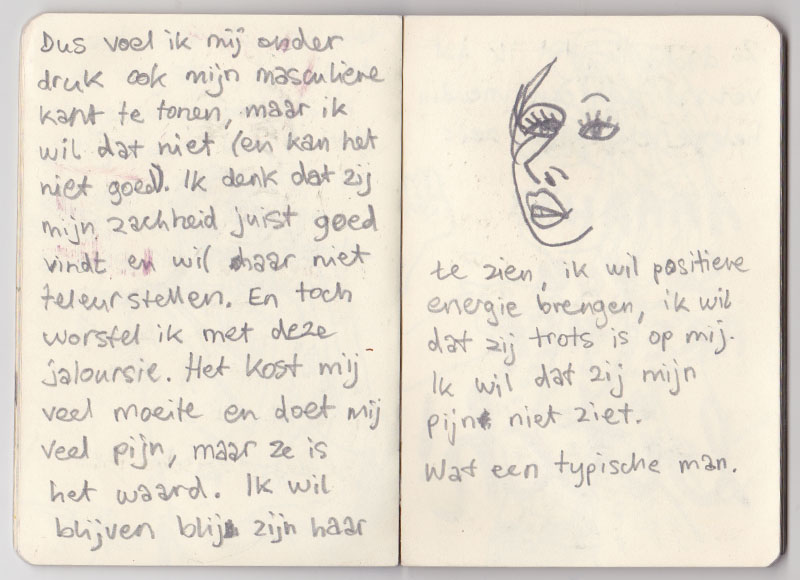 Dus voel ik mij onder
druk ook mijn masculiene
kant te tonen, maar ik
wil dat niet (en kan het
niet goed). Ik denk dat zij
mijn zachheid juist goed
vindt en wil haar niet
teleurstellen. En toch
worstel ik met deze
jaloursie. Het kost mij
veel moeite en doet mij
veel pijn, maar ze is
het waard. Ik wil
blijven blij zijn haar
te zien, ik wil positieve
energie brengen, ik wil
dat zij trots is op mij.
Ik wil dat zij mijn
pijn niet ziet.
Wat een typische man.